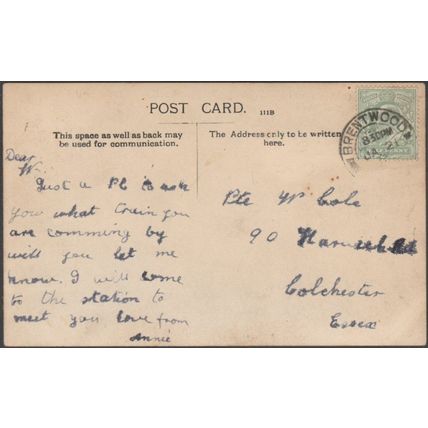 POST CARD. 111B
This space as well as back may
be used for communication.
The Address only to be written
here.
BRENTWOOD
8.30 PM
JA 21
Dear
W.
Just a PC to ask
you what train you
are comming by
will you let me
know. I will come
to the station to
meet you love from
Annie
Pte W Cole
90
Colchester
Essex